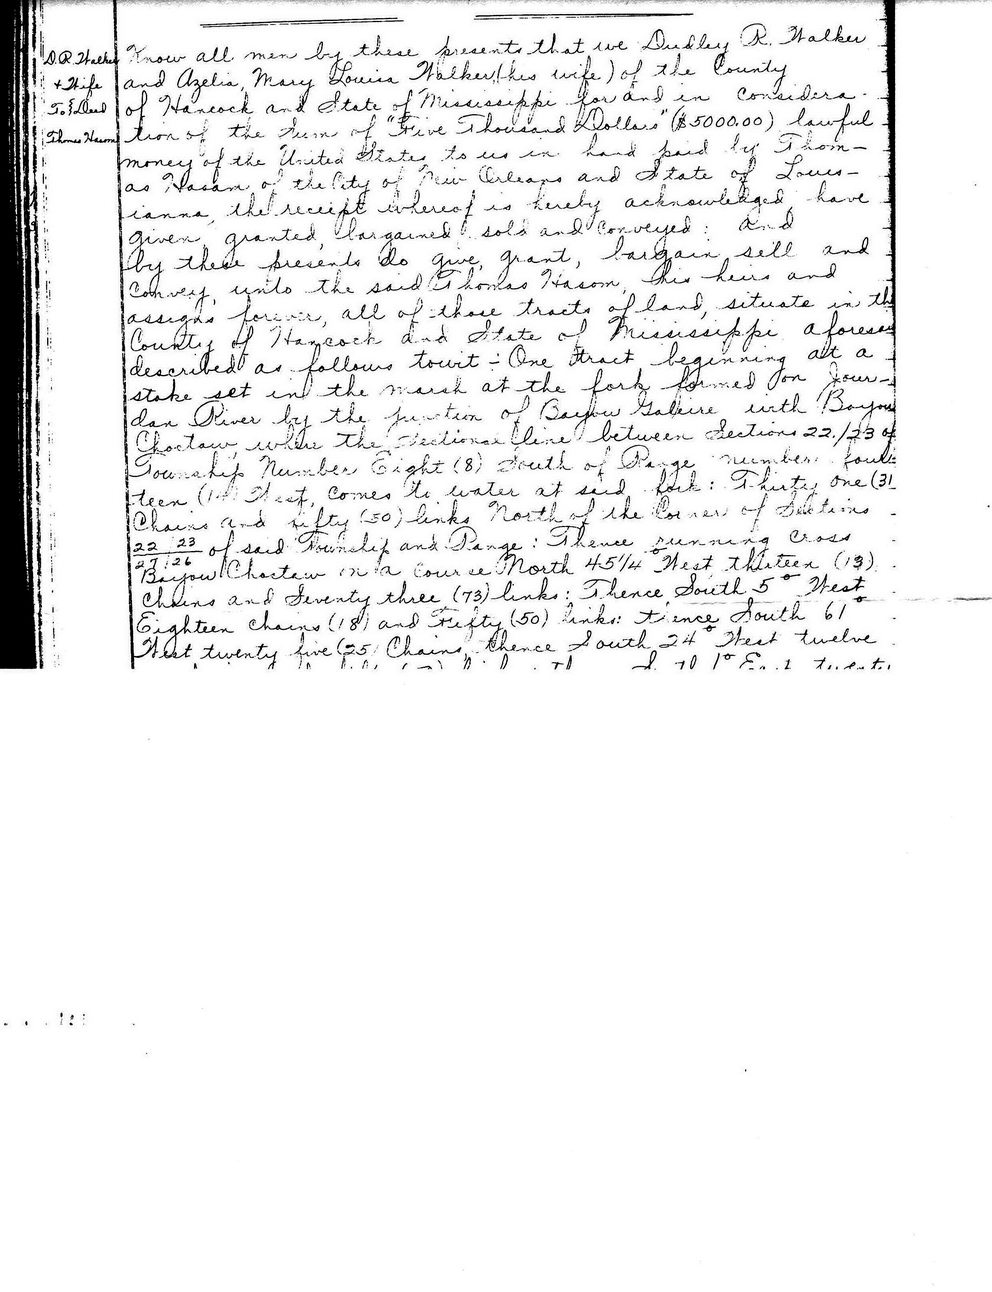 D. R. Walker
& Wife
To } Deed
Thomas Hasam
Know all men by these presents that we Dudley R. Walker
and Azelia, Mary Louisa Walker, (his wife) of the County
of Hancock and State of Mississippi for and in considera-
tion of the Sum of "Five Thousand Dollars" ($5000.00) lawful
money of the United States, to us in hand paid by Thom-
as Hasam of the City of New Orleans and State of Louis-
ianna, the receipt whereof is hereby acknowledged, have
given, granted, bargained, sold and conveyed: and
by these presents do give, grant, bargain, sell and
convey, unto the said Thomas Hasom, his heirs and
assigns forever, all of those tracts of land, situate in th
County of Hancock and State of Mississippi aforesai
described as follows towit:- One tract beginning at a
stake set in the marsh at the fork formed on Jour-
dan River by the junction of Bayou Galere with Bayou
Choctaw, where the Sectional line between Sections 22/23 of
Township Number Eight (8) South of Range number four-
teen (14) West, comes to water at said fork: Thirty one (31
Chains and fifty (50) links North of the Corner of Sections
22/23
27/26 of said Township and Range: Thence running cross
Bayou Choctaw in a course North 45 1/4° West thirteen (13)
Chains and Seventy three (73) links: Thence South 5° West
Eighteen chains (18) and Fifty (50) links: thence South 61°
West twenty five (25) Chains, thence South 24° West twelve
1° East twenty